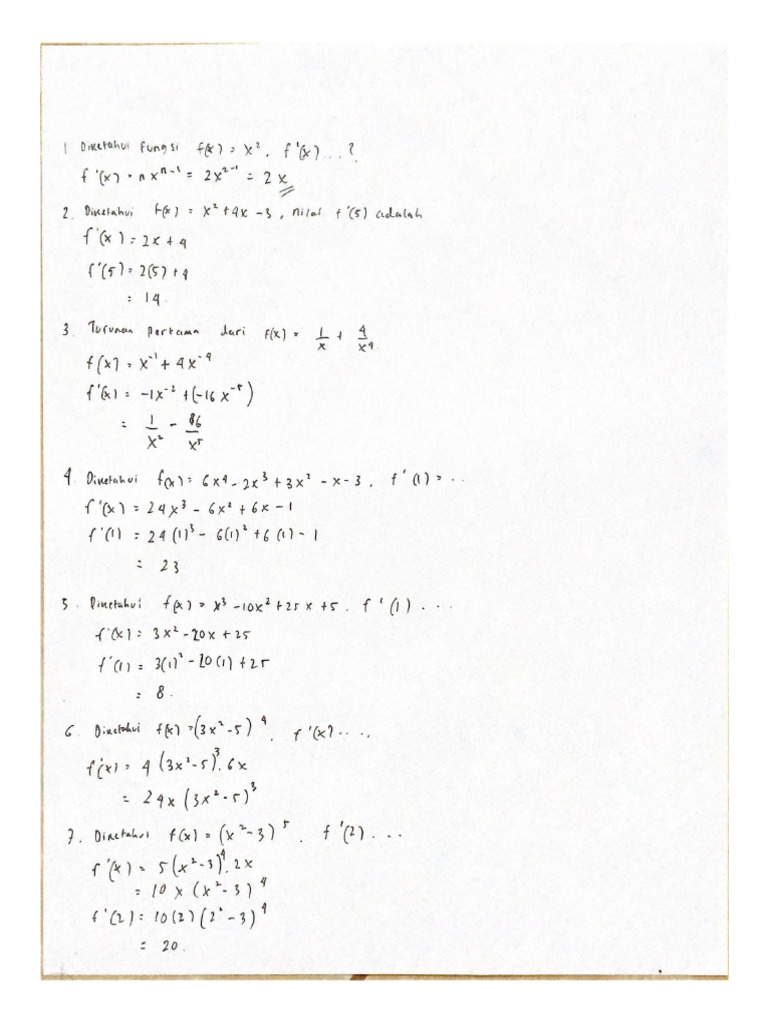 1 Diketahui Fungsi f(x) = x², f'(x) ...?
f'(x) = nx^{n-1} = 2x^{2-1} = 2x
2. Diketahui f(x) = x² + 4x - 3, nilai f'(5) adalah
f'(x) = 2x + 4
f'(5) = 2(5) + 4
= 14.
3. Turunan Pertama dari f(x) = 1/x + 4/x⁴.
f(x) = x⁻¹ + 4x⁻⁴
f'(x) = -1x⁻² + (-16x⁻⁵)
= 1/x² - 16/x⁵
4 Diketahui f(x) = 6x⁴ - 2x³ + 3x² - x - 3, f'(1) = ..
f'(x) = 24x³ - 6x² + 6x - 1
f'(1) = 24(1)³ - 6(1)² + 6(1) - 1
= 23
5. Diketahui f(x) = x³ - 10x² + 25x + 5. f'(1) ...
f'(x) = 3x² - 20x + 25
f'(1) = 3(1)² - 20(1) + 25
= 8.
6. Diketahui f(x) = (3x² - 5)⁴. f'(x) ....
f'(x) = 4(3x² - 5)³. 6x
= 24x(3x² - 5)³
7. Diketahui f(x) = (x² - 3)⁵. f'(2) ...
f'(x) = 5(x² - 3)⁴. 2x
= 10x(x² - 3)⁴
f'(2) = 10(2)(2² - 3)⁴
= 20.